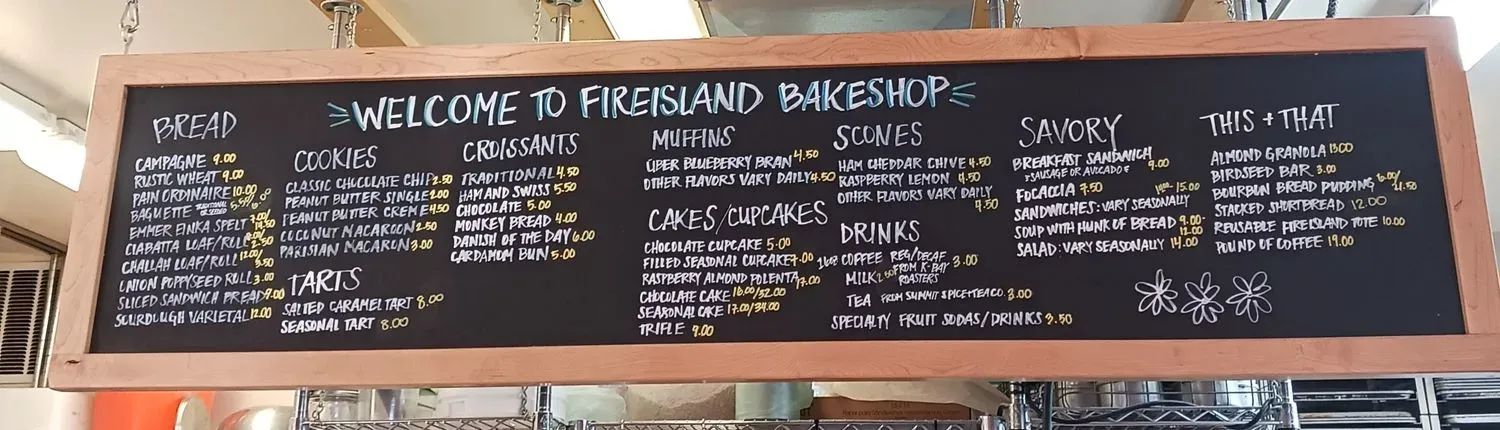 WELCOME TO FIREISLAND BAKESHOP
BREAD
CAMPAGNE 9.00
RUSTIC WHEAT 9.00
PAIN ORDINAIRE 10.00
BAGUETTE TRADITIONAL OR SEEDED
EMMER EINKA SPELT 7.00/
CIABATTA LOAF/ROLL
CHALLAH LOAF/ROLL 12.00/
UNION POPPYSEED ROLL 3.00
SLICED SANDWICH BREAD 9.00
SOURDOUGH VARIETAL 12.00
COOKIES
CLASSIC CHOCOLATE CHIP 2.50
PEANUT BUTTER SINGLE 2.00
PEANUT BUTTER CREME 4.50
COCONUT MACAROON 2.50
PARISIAN MACARON 3.00
TARTS
SALTED CARAMEL TART 8.00
SEASONAL TART 8.00
CROISSANTS
TRADITIONAL 4.50
HAM AND SWISS 5.50
CHOCOLATE 5.00
MONKEY BREAD 4.00
DANISH OF THE DAY 6.00
CARDAMOM BUN 5.00
MUFFINS
ÜBER BLUEBERRY BRAN 4.50
OTHER FLAVORS VARY DAILY 4.50
CAKES/CUPCAKES
CHOCOLATE CUPCAKE 5.00
FILLED SEASONAL CUPCAKE 7.00
RASPBERRY ALMOND POLENTA 7.00
CHOCOLATE CAKE 16.00/32.00
SEASONAL CAKE 17.00/34.00
TRIFLE 9.00
SCONES
HAM CHEDDAR CHIVE 4.50
RASPBERRY LEMON 4.50
OTHER FLAVORS VARY DAILY
4.50
DRINKS
COFFEE REG/DECAF 3.00
FROM K-BAY
MILK 2.50 ROASTERS
TEA FROM SUMMIT SPICE+TEA CO. 3.00
SPECIALTY FRUIT SODAS/DRINKS 3.50
SAVORY
BREAKFAST SANDWICH 9.00
+SAUSAGE OR AVOCADO
FOCACCIA 7.50
SANDWICHES: VARY SEASONALLY 15.00
SOUP WITH HUNK OF BREAD 9.00-
12.00
SALAD: VARY SEASONALLY 14.00
THIS + THAT
ALMOND GRANOLA 13.00
BIRDSEED BAR 3.00
BOURBON BREAD PUDDING
STACKED SHORTBREAD 12.00
REUSABLE FIREISLAND TOTE 10.00
POUND OF COFFEE 19.00